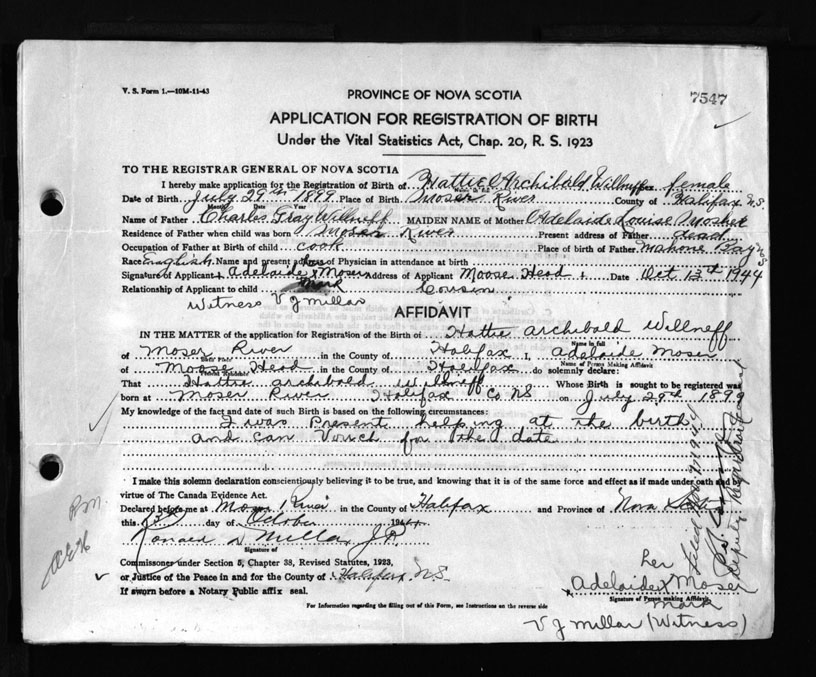 V. S. Form 1.—10M-11-43
7547
PROVINCE OF NOVA SCOTIA
APPLICATION FOR REGISTRATION OF BIRTH
Under the Vital Statistics Act, Chap. 20, R. S. 1923
TO THE REGISTRAR GENERAL OF NOVA SCOTIA
I hereby make application for the Registration of Birth of Hattie Archibald Willneff Sex female
Date of Birth July 29th 1899 Place of Birth Moser River County of Halifax N.S
Month Date Year
Name of Father Charles Gray Willneff MAIDEN NAME of Mother Adelaide Louise Mosher
Residence of Father when child was born Moser River Present address of Father dead
Occupation of Father at Birth of child cook Place of birth of Father Mahone Bay NS
Race English Name and present address of Physician in attendance at birth
Signature of Applicant Adelaide x Moser Address of Applicant Moose Head Date Oct 13th 1944
her
mark
Relationship of Applicant to child Cousin
Witness V J Millar
AFFIDAVIT
IN THE MATTER of the application for Registration of the Birth of Hattie Archibald Willneff
Name in full
of Moser River in the County of Halifax I, Adelaide Moser
Birth Place
Name of Person Making Affidavit
of Moose Head in the County of Halifax do solemnly declare:
Present Residence
That Hattie Archibald Willneff Whose Birth is sought to be registered was
born at Moser River Halifax Co NS on July 29th 1899
My knowledge of the fact and date of such Birth is based on the following circumstances:
I was Present helping at the birth
and can Vouch for the date
I make this solemn declaration conscientiously believing it to be true, and knowing that it is of the same force and effect as if made under oath and by
virtue of The Canada Evidence Act.
Declared before me at Moser River in the County of Halifax and Province of Nova Scotia
this day of October 1944
Ronald D Millar J.P.
Signature of
Commissioner under Section 5, Chapter 38, Revised Statutes, 1923,
or Justice of the Peace in and for the County of Halifax N.S.
If sworn before a Notary Public affix seal.
her
Adelaide x Moser
Signature of Person making Affidavit
mark
V J Millar (Witness)
For Information regarding the filling out of this Form, see Instructions on the reverse side
deputy Registrar General